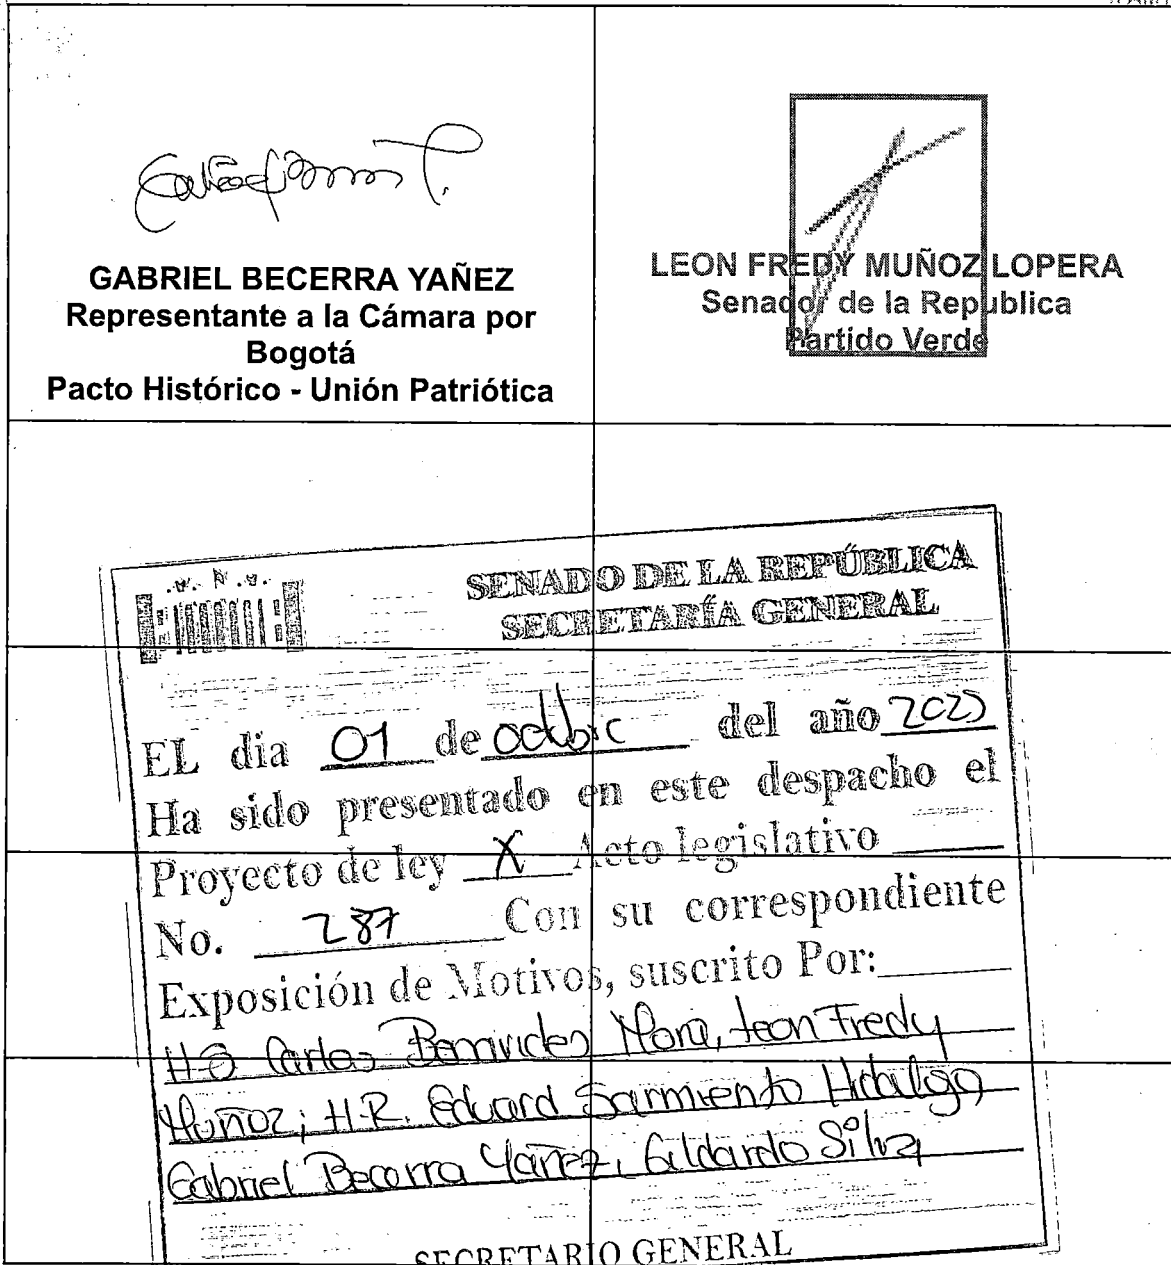 GABRIEL BECERRA YAÑEZ
Representante a la Cámara por
Bogotá
Pacto Histórico - Unión Patriótica
LEON FREDY MUÑOZ LOPERA
Senador de la Republica
Partido Verde
SENADO DE LA REPÚBLICA
SECRETARÍA GENERAL
EL dia 01 de octubre del año 2025
Ha sido presentado en este despacho el
Proyecto de ley X Acto legislativo
No. 287 Con su correspondiente
Exposición de Motivos, suscrito Por:
H.S Carlos Benavides Mora, Leon Fredy
Muñoz; H.R. Eduard Sarmiento Hidalgo
Gabriel Becerra Yañez, Gildardo Silva
SECRETARIO GENERAL